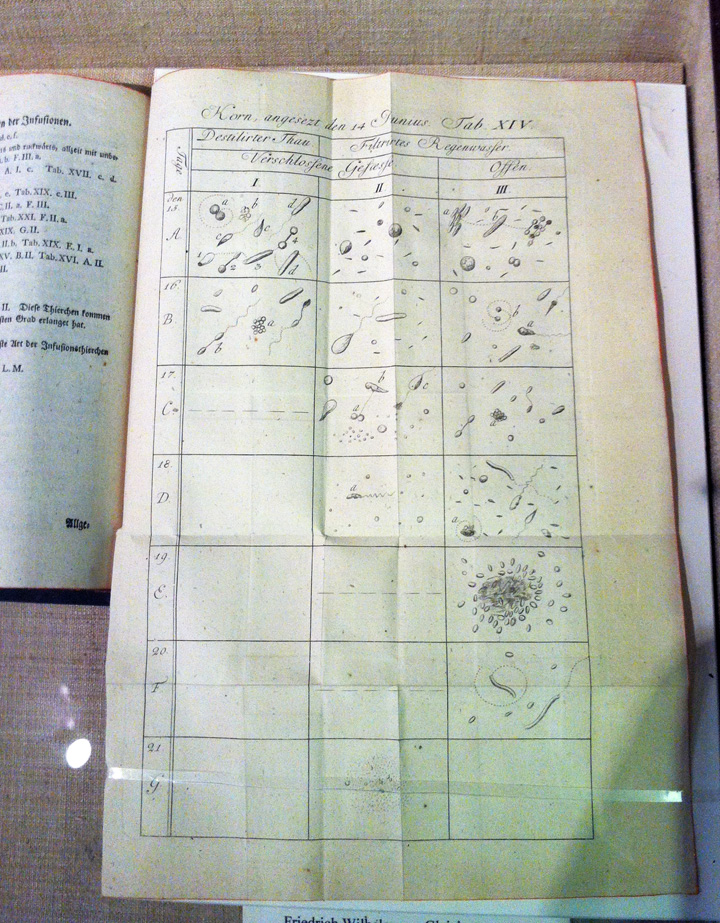 n der Infusionen.
d. e. f.
und rastwärts, allzeit mit
b. F. III. a.
A. I. c. Tab. XVII. c. d.
e. Tab. XIX. c. III.
II. a. F. III.
Tab. XXI. F. II. a.
XIX. G. II.
II. b. Tab. XIX. F. I. a.
XV. B. II. Tab. XVI. A. II.
II.
II. Diese Thierchen kommen
sten Grad erlanget hat.
ste Art der Infusionsthierchen
L. M.
Allge-
Korn, angesezt den 14 Junius. Tab. XIV.
Tage
Destilirter Thau. Filtrirtes Regenwasser.
Verschlossene Gefæsse. Offen.
I II III
den
15.
A
a b d
c
c
1 2 3 4 d
a b
16.
B.
a
b
b
a
17.
C.
b c
a
a
18.
D.
a
a
19.
E.
20.
F
21.
G
Friedrich Wilhelm